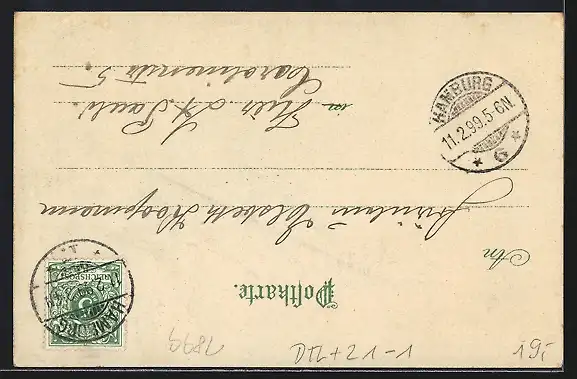 Postkarte.
An
Fräulein Elsbeth Koopmann
in Hier St. Pauli.
Carolinenstr 5.
HAMBURG
11.2.99.5-6N.
* 6 *
HAMBURG
REICHSPOST
5
1899
DTL+21-1
19,-